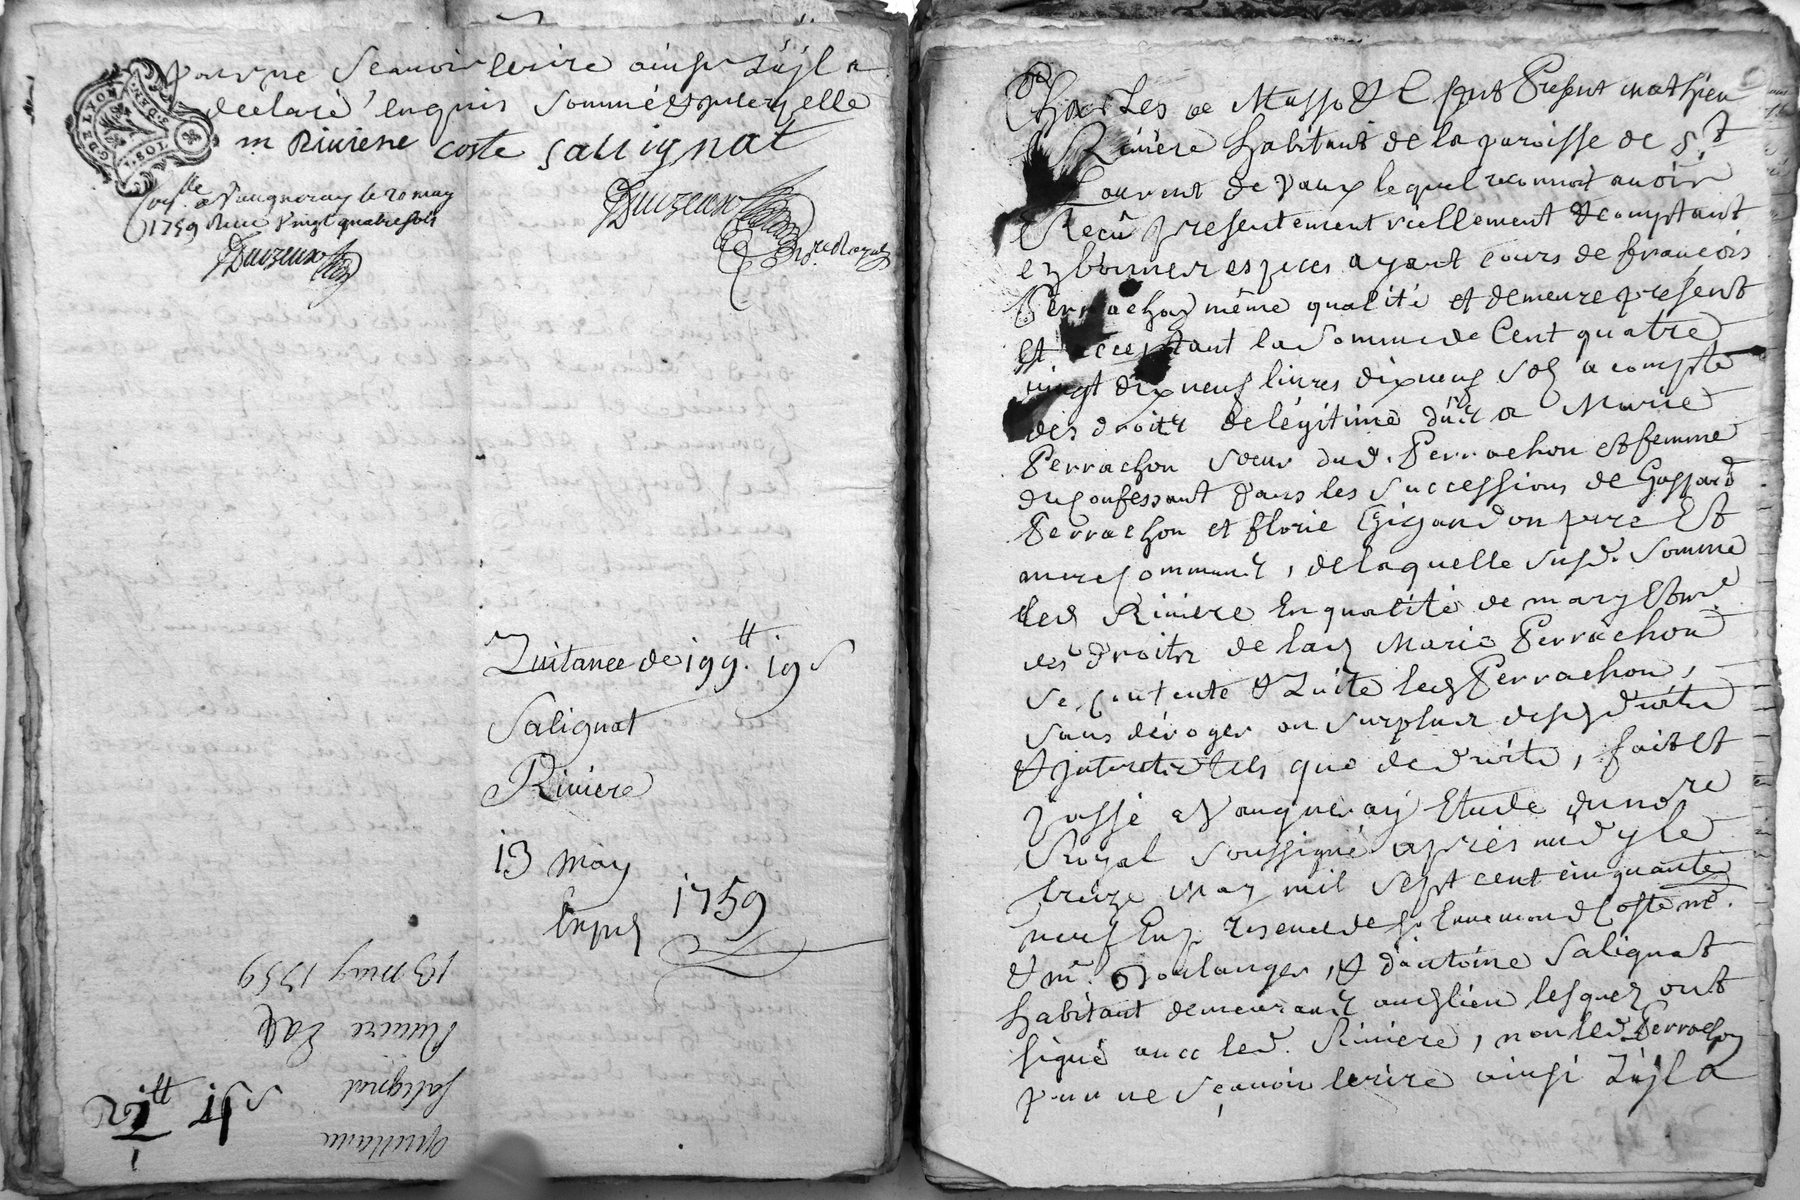 pour ne Scavoir Ecrire ainsi Qu'il a
declaré enquis Sommé et
m Riviere coste Salignat
G. DE LYON
1. SOL
S. DEN.
a Vaugneray le 20 may
1759 Recu Vingt quatre sols
Quitance de 199.tt 19 s
Salignat
Riviere
13 may
1759
Exped
13 may 1759
Riviere
Salignat
Quittance
Fut Present mathieu
Riviere habitant de la paroisse de St
Laurent de Vaux lequel reconnoit avoir
Reçû presentement reellement et comptant
en bonnes especes ayant cours de françois
Perrachon même qualité et demeure present
Et acceptant la Somme de Cent quatre
vingt dix neuf livres dix neuf Sols a compte
des droits de légitime dûs a Marie
Perrachon soeur dud. Perrachon et femme
du Confessant dans les Successions de Gaspard
Perrachon et florie Gigandon pere Et
mere Communs, de laquelle susd. Somme
led. Riviere En qualité de mary Et me
des droits de lad. Marie Perrachon
se, contente et Quite led. Perrachon,
sans déroger au surplus desd. droits
et Interets tels que de droits, fait Et
passé a Vaugneray Etude du nore
Royal soussigné après midy le
treize May mil sept cent cinquante
neuf En presence de sr Ennemond Coste me.
et mr. Boulanger, et d'antoine Salignat
habitant demeurants aud. lieu lesquels ont
signé avec led. Riviere, non led. Perrachon
pour ne Sçavoir Ecrire ainsi Qu'il a